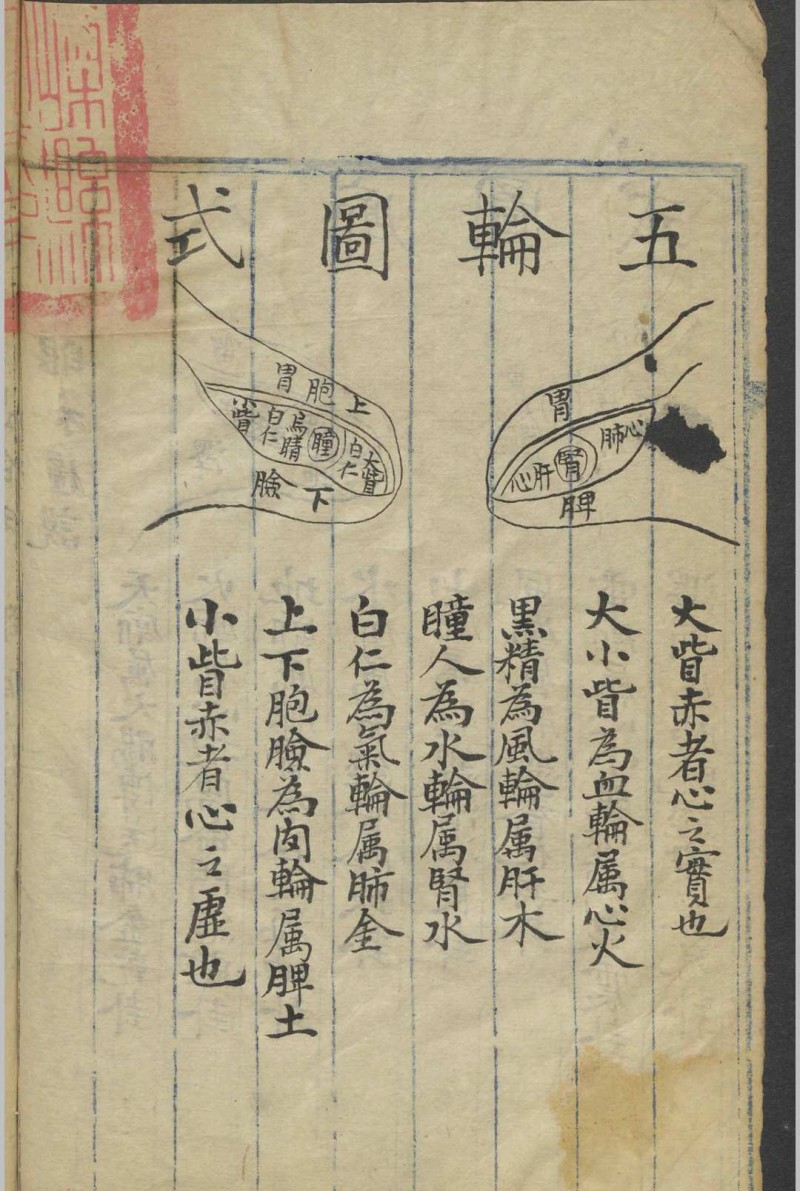 五輪圖式
胃
心
肺
腎
肝
心
脾
上胞
胃
大眥
白仁
瞳
烏睛
白仁
眥
下臉
大眥赤者心之實也
大小眥為血輪属心火
黒精為風輪属肝木
瞳人為水輪属腎水
白仁為氣輪属肺金
上下胞臉為肉輪属脾土
小眥赤者心之虛也